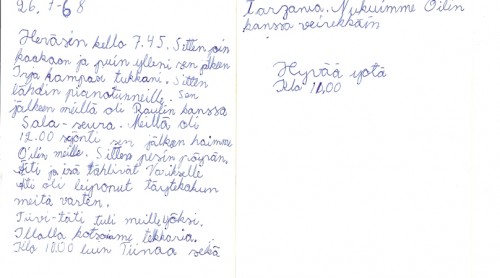 26.7-68
Heräsin kello 7.45. Sitten join
kaakaon ja puin ylleni sen jälken
Irja kampasi tukkani. Sitten
lähdin pianotunneille. Sen
jälken meillä oli Raulin kanssa
Sala-seura. Meillä oli
12.00 syönti sen jälken haimme
Oilin meille. Sitten pesin pöyrän.
Äiti ja isä lähtivät Varikselle
Äiti oli leiponut täytekakun
meitä varten.
Tuvi-täti tuli meille yöksi.
Illalla katsoimme telkkaria.
Klo 10.00 luin Tiinaa sekä
Tarzania. Nukuimme Oilin
kanssa veirekkäin
Hyvää yötä
Klo 11.00